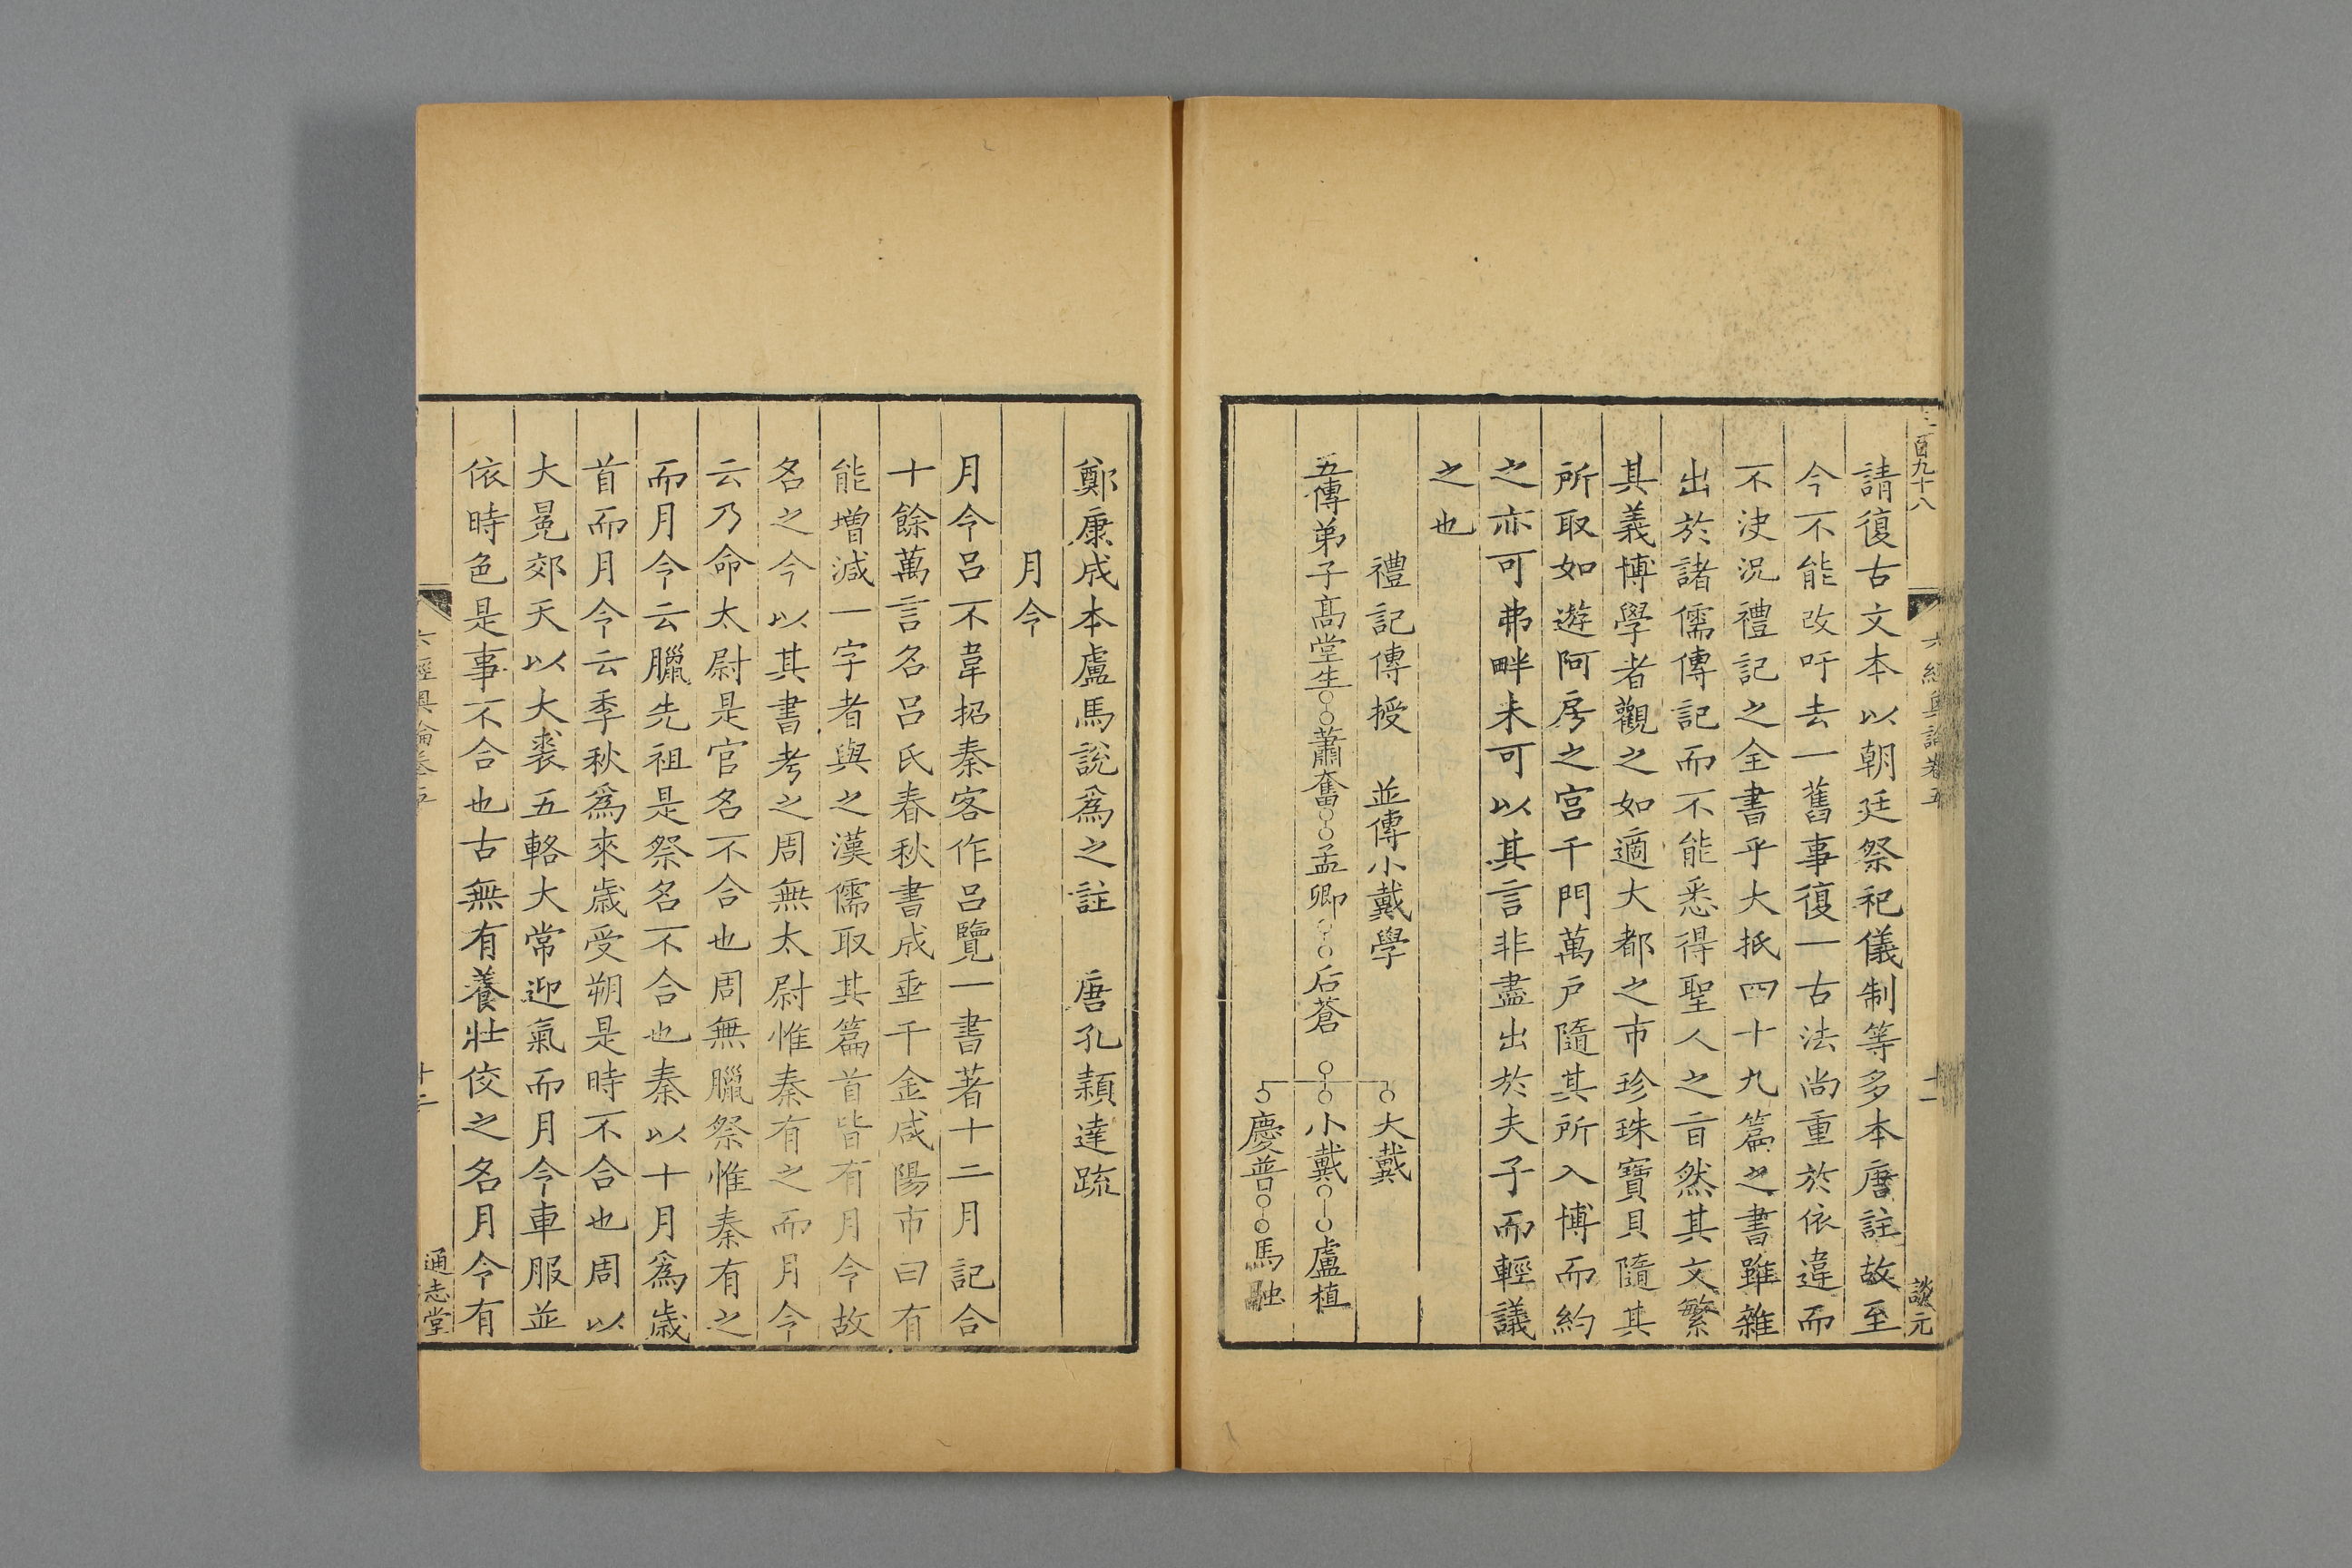 請復古文本以朝廷祭祀儀制等多本唐註故至
今不能改吁去一舊事復一古法尚重於依違而
不決況禮記之全書乎大抵四十九篇之書雖雜
出於諸儒傳記而不能悉得聖人之旨然其文繁
其義博學者觀之如適大都之市珍珠寶貝隨其
所取如遊阿房之宮千門萬戸隨其所入博而約
之亦可弗畔未可以其言非盡出於夫子而輕議
之也
禮記傳授　並傳小戴學
大戴
五傳弟子髙堂生 蕭奮 孟卿 后蒼 小戴 盧植
慶普 馬融
六經奥論卷五
十一
談元
鄭康成本盧馬說為之註　唐孔頴達疏
月令
月令呂不韋招秦客作呂覽一書著十二月記合
十餘萬言名呂氏春秋書成垂千金咸陽市曰有
能增減一字者與之漢儒取其篇首皆有月令故
名之今以其書考之周無太尉惟秦有之而月令
云乃命太尉是官名不合也周無臘祭惟秦有之
而月令云臘先祖是祭名不合也秦以十月為歳
首而月令云季秋為來歳受朔是時不合也周以
大冕郊天以大裘五輅大常迎氣而月令車服並
依時色是事不合也古無有養壮佼之名月令有
六經奥論卷五
十二
通志堂